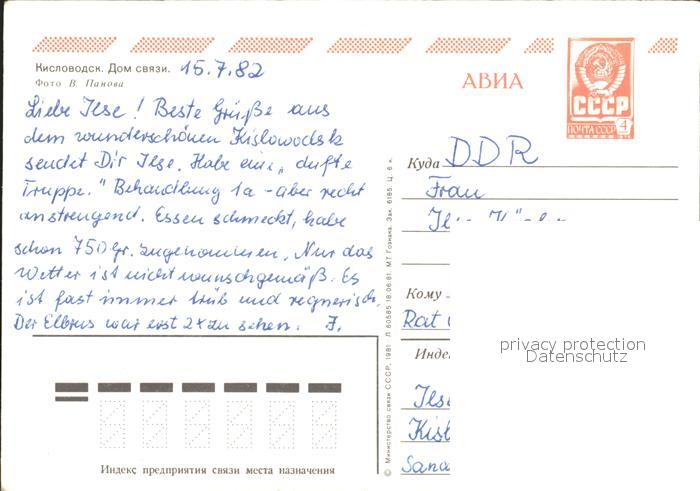 Кисловодск. Дом связи. 15.7.82
Фото В. Панова
Liebe Ilse! Beste Grüße aus
dem wunderschönen Kislowodsk
sendet Dir Ilse. Habe eine „dufte
Truppe." Behandlung 1a - aber recht
anstrengend. Essen schmeckt, habe
schon 750 gr. zugenommen. Nur das
Wetter ist nicht wunschgemäß. Es
ist fast immer trüb und regnerisch.
Der Elbrus war erst 2x zu sehen. I.
Индекс предприятия связи места назначения
© Министерство связи СССР, 1981 Л 60585 18.06.81. МТ Гознака. Зак. 6185. Ц. 6 к.
АВИА
СССР
ПОЧТА СССР 4
Куда DDR
Frau
Кому
Rat
privacy protection
Datenschutz
Инде
Ils
Kisl
Sana